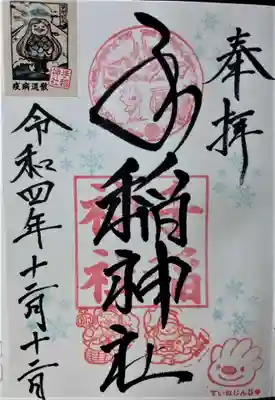 奉拝
手稲神社
令和四年十二月十二日
疫病退散
手稲神社
手稲神社
ていねじんじゃ